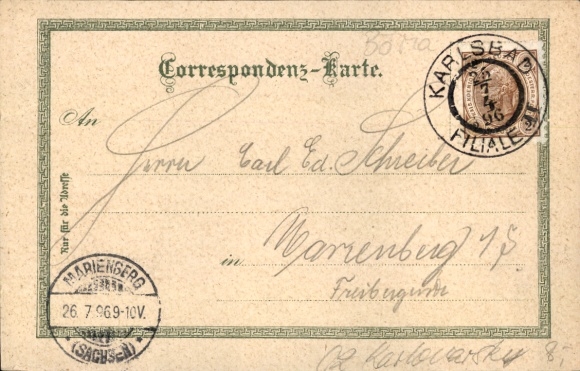 Correspondenz-Karte.
KARLSBAD
25
7
4
96
FILIALE
An
Herrn Carl Ed. Schreiber
Nur für die Adresse
in Marienberg i/S
MARIENBERG
26. 7 96 9-10V.
* (SACHSEN) *
02 Karlovarsky 8,-